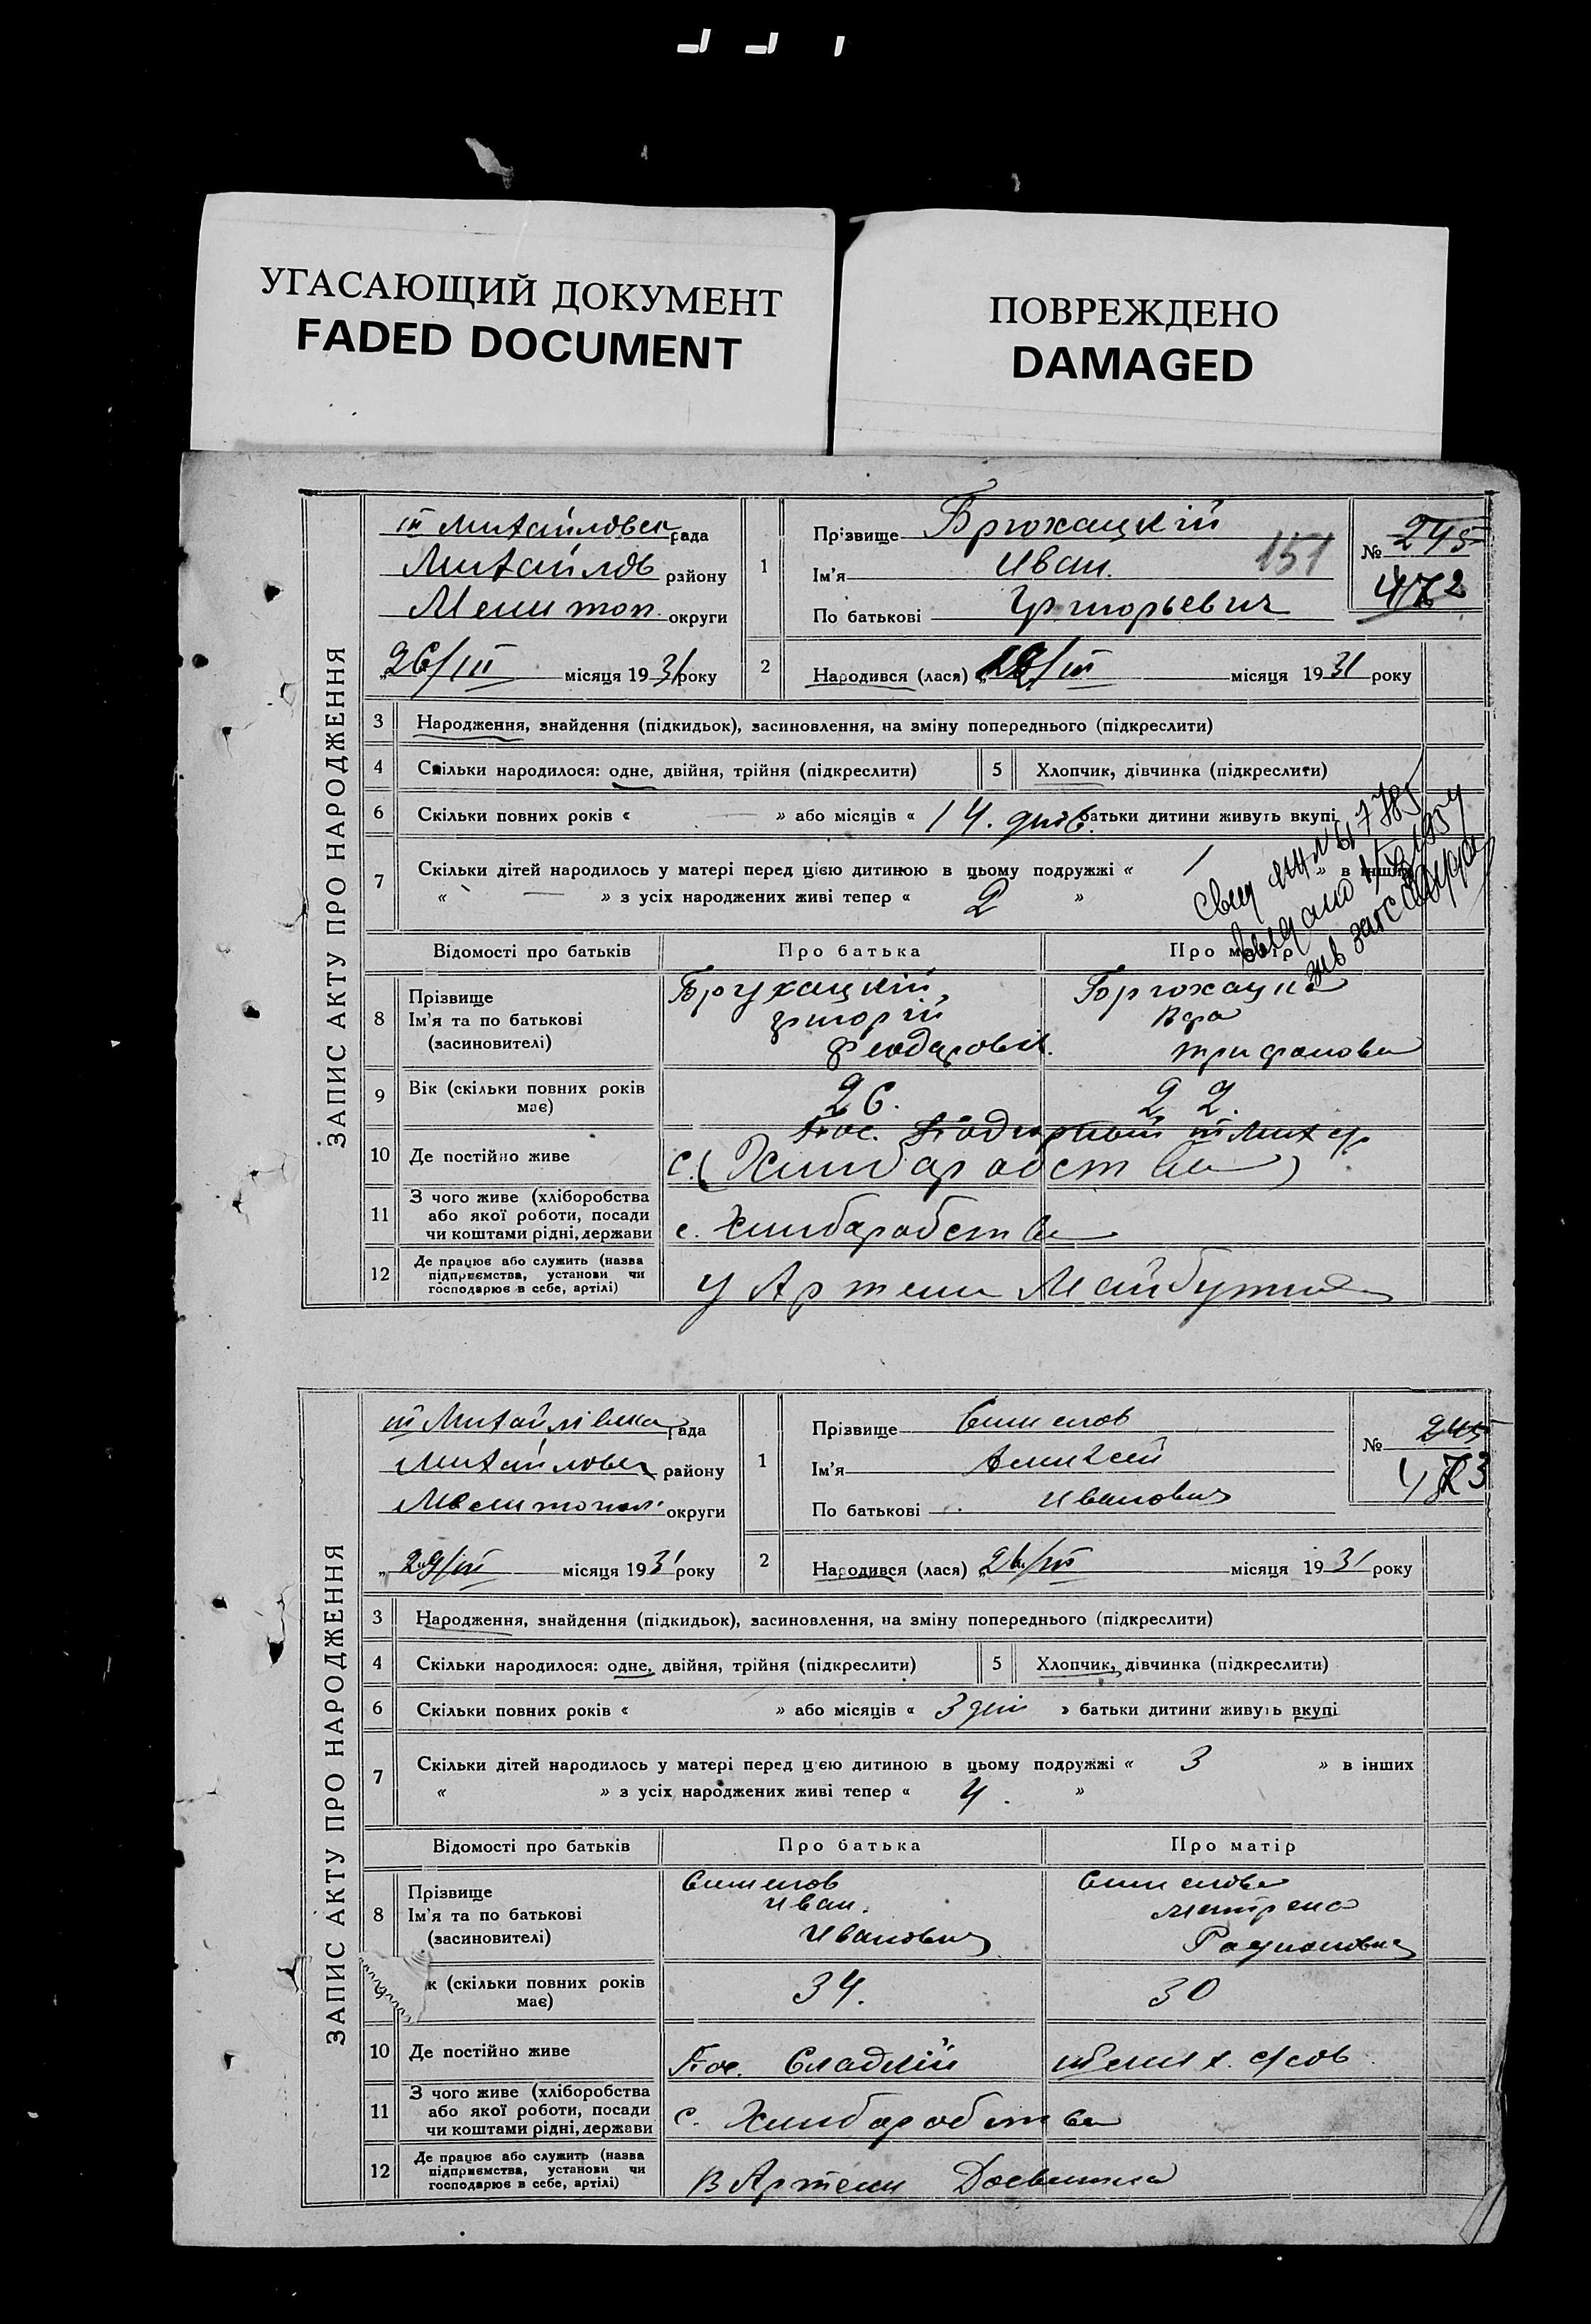 УГАСАЮЩИЙ ДОКУМЕНТ
FADED DOCUMENT
ПОВРЕЖДЕНО
DAMAGED
ЗАПИС АКТУ ПРО НАРОДЖЕННЯ
III Михайловск рада
Михайлов району
Мелитоп. округи
„26/III місяця 1931 року
1
Прізвище Брюхацкій
Ім'я Иван.
151
По батькові Григорьевич
№ 245
472
2
Народився (лася) „ /III місяця 1931 року
3 Народження, знайдення (підкидьок), засиновлення, на зміну попереднього (підкреслити)
4 Скільки народилося: одне, двійня, трійня (підкреслити)
5 Хлопчик, дівчинка (підкреслити)
6 Скільки повних років « — » або місяців « 14. днів. батьки дитини живуть вкупі
7 Скільки дітей народилось у матері перед цією дитиною в цьому подружжі « 1 » в інших
« — » з усіх народжених живі тепер « 2 »
Свид
выдано
зав загс
Відомості про батьків
Про батька
Про матір
8 Прізвище
Ім'я та по батькові
(засиновителі)
Брухацкій,
Григорій
Феодарович.
Брюхацка
Вра
Трифановна
9 Вік (скільки повних років має)
26.
22.
10 Де постійно живе
Пос. Подгорный III Мих с/р
с. (Хлибаробства)
11 З чого живе (хліборобства
або якої роботи, посади
чи коштами рідні, держави
с. Хлибаробства
12 Де працює або служить (назва
підприємства, установи чи
господарює в себе, артілі)
у Артели Майбутня
ЗАПИС АКТУ ПРО НАРОДЖЕННЯ
III Михайлівска рада
Михайловск району
Мелитопол. округи
„29/III місяця 1931 року
1
Прізвище
Ім'я Аликсей
По батькові Иванович
№ 245
473
2
Народився (лася) „26/III місяця 1931 року
3 Народження, знайдення (підкидьок), засиновлення, на зміну попереднього (підкреслити)
4 Скільки народилося: одне, двійня, трійня (підкреслити)
5 Хлопчик, дівчинка (підкреслити)
6 Скільки повних років « » або місяців « 3 дні » батьки дитини живуть вкупі
7 Скільки дітей народилось у матері перед цією дитиною в цьому подружжі « 3 » в інших
« » з усіх народжених живі тепер « 4. »
Відомості про батьків
Про батька
Про матір
8 Прізвище
Ім'я та по батькові
(засиновителі)
Иван.
Иванович
Матрена
Радионовна
к (скільки повних років
має)
34.
30
10 Де постійно живе
Пос. Сладкій
11 З чого живе (хліборобства
або якої роботи, посади
чи коштами рідні, держави
с. Хлибаробства
12 Де працює або служить (назва
підприємства, установи чи
господарює в себе, артілі)
В Артели